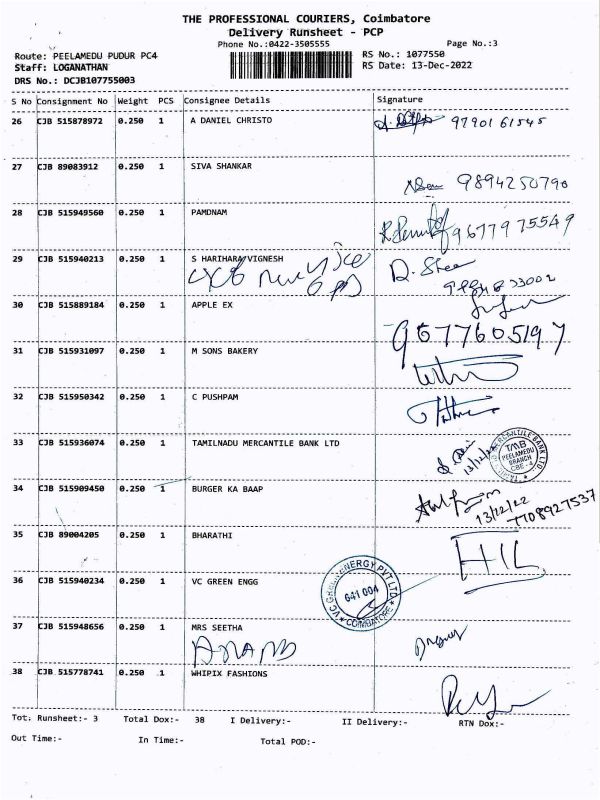 THE PROFESSIONAL COURIERS, Coimbatore
Delivery Runsheet - PCP
Phone No.:0422-3505555 Page No.:3
Route: PEELAMEDU PUDUR PC4 RS No.: 1077550
Staff: LOGANATHAN RS Date: 13-Dec-2022
DRS No.: DCJB107755003
S No Consignment No Weight PCS Consignee Details Signature
26 CJB 515878972 0.250 1 A DANIEL CHRISTO 97901 61545
27 CJB 89083912 0.250 1 SIVA SHANKAR
9894250790
28 CJB 515949560 0.250 1 PAMDNAM
9677975549
29 CJB 515940213 0.250 1 S HARIHARA/VIGNESH
30 CJB 515889184 0.250 1 APPLE EX
9677605197
31 CJB 515931097 0.250 1 M SONS BAKERY
32 CJB 515950342 0.250 1 C PUSHPAM
33 CJB 515936074 0.250 1 TAMILNADU MERCANTILE BANK LTD
13/12/22
TMB
PEELAMEDU
BRANCH
CBE - 4
34 CJB 515909450 0.250 1 BURGER KA BAAP
13/12/22
7708927537
35 CJB 89004205 0.250 1 BHARATHI
HIL
36 CJB 515940234 0.250 1 VC GREEN ENGG
V.C. GREEN ENERGY PVT LTD
641 004
COIMBATORE
37 CJB 515948656 0.250 1 MRS SEETHA
ANAND
38 CJB 515778741 0.250 1 WHIPIX FASHIONS
Tot: Runsheet:- 3 Total Dox:- 38 I Delivery:- II Delivery:- RTN Dox:-
Out Time:- In Time:- Total POD:-